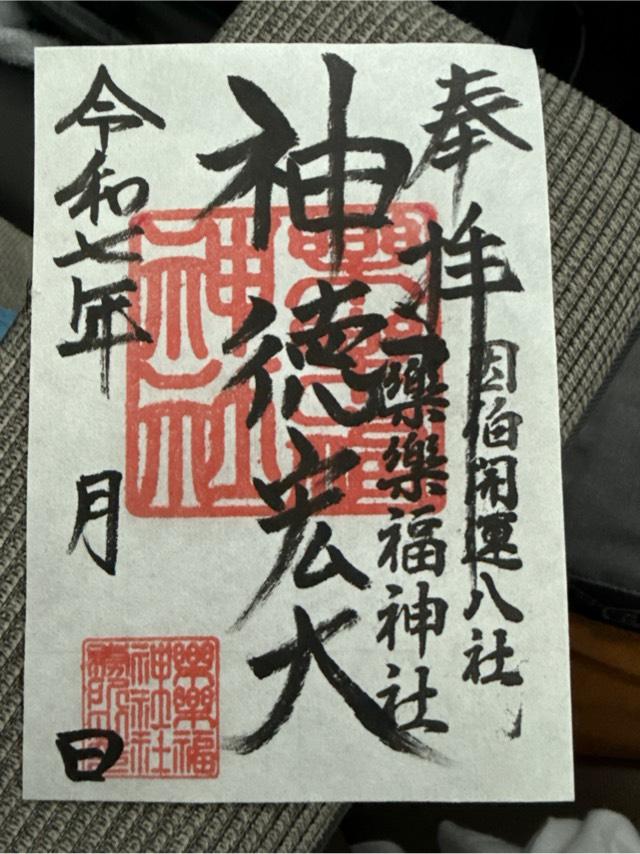 奉拝
因伯開運八社
樂樂福神社
神徳宏大
樂樂福
神社
令和七年 月 日
樂樂福
神社社
務所印